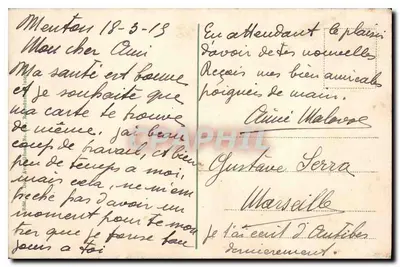 Menton 18-3-19
Mon cher Ami
Ma santé est bonne
et je souhaite que
ma carte te trouve
de même. j'ai beau
coup de travail, et bien
peu de temps a moi,
mais cela, ne m'em
peche pas d'avoir un
moment pour te mon
trer que je pense tou
jours a toi
En attendant le plaisir
d'avoir de tes nouvelles
Reçois mes bien amicales
poignées de main.
Aimé
Gustave Serra
Marseille
Je t'ai écrit d'Antibes
dernierement.